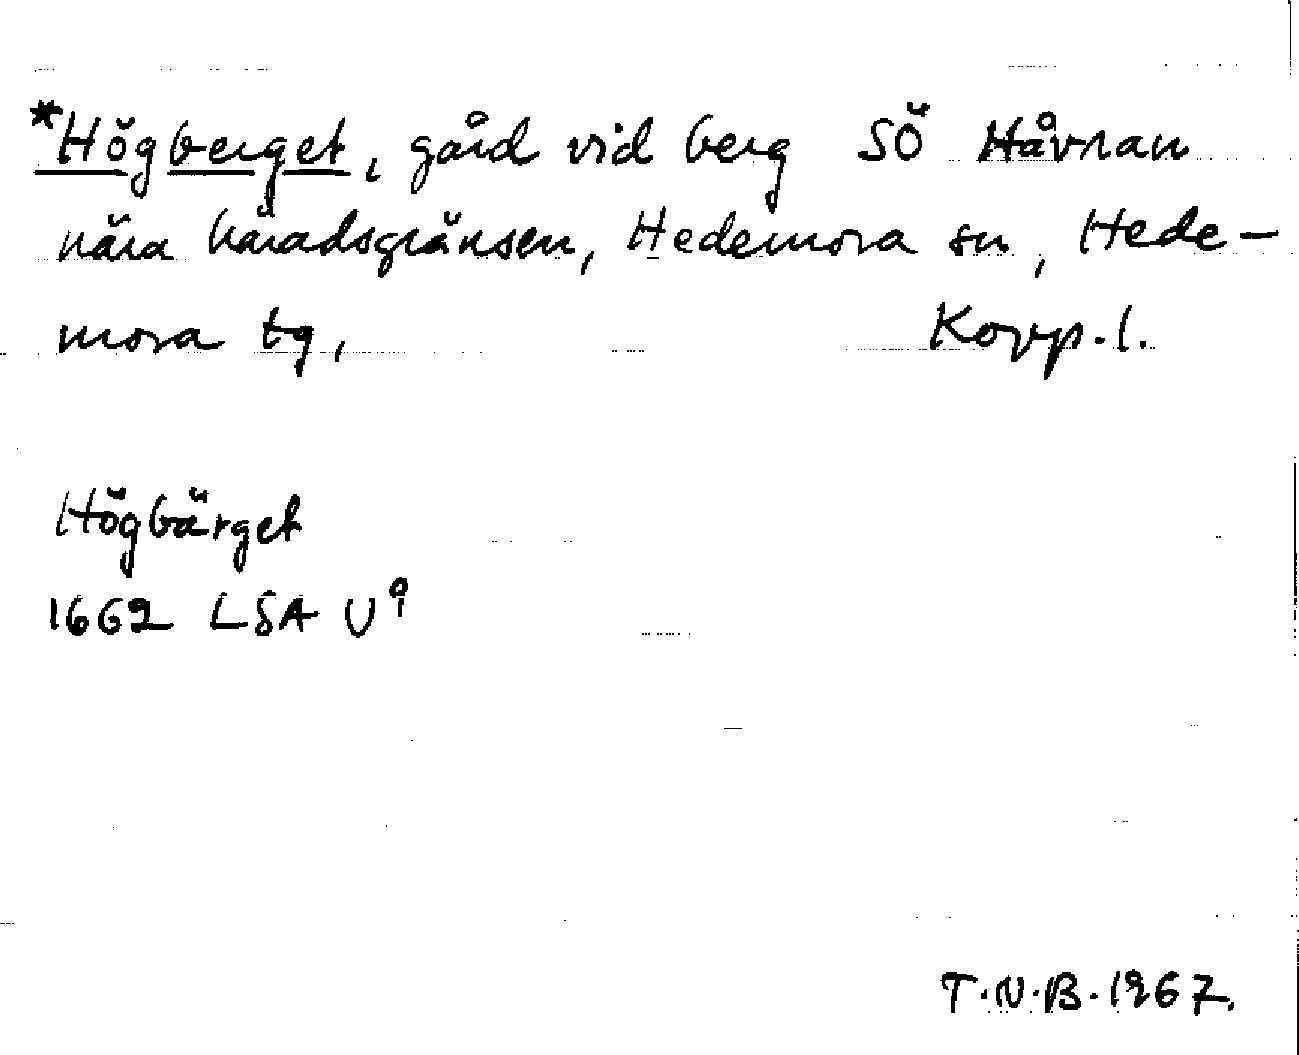 *Högberget, gård vid berg SÖ Håvran
nära häradsgränsen, Hedemora sn, Hede-
mora tg, Kopp.l.
Högbärget
1662 LSA U⁹
T.N.B. 1967.